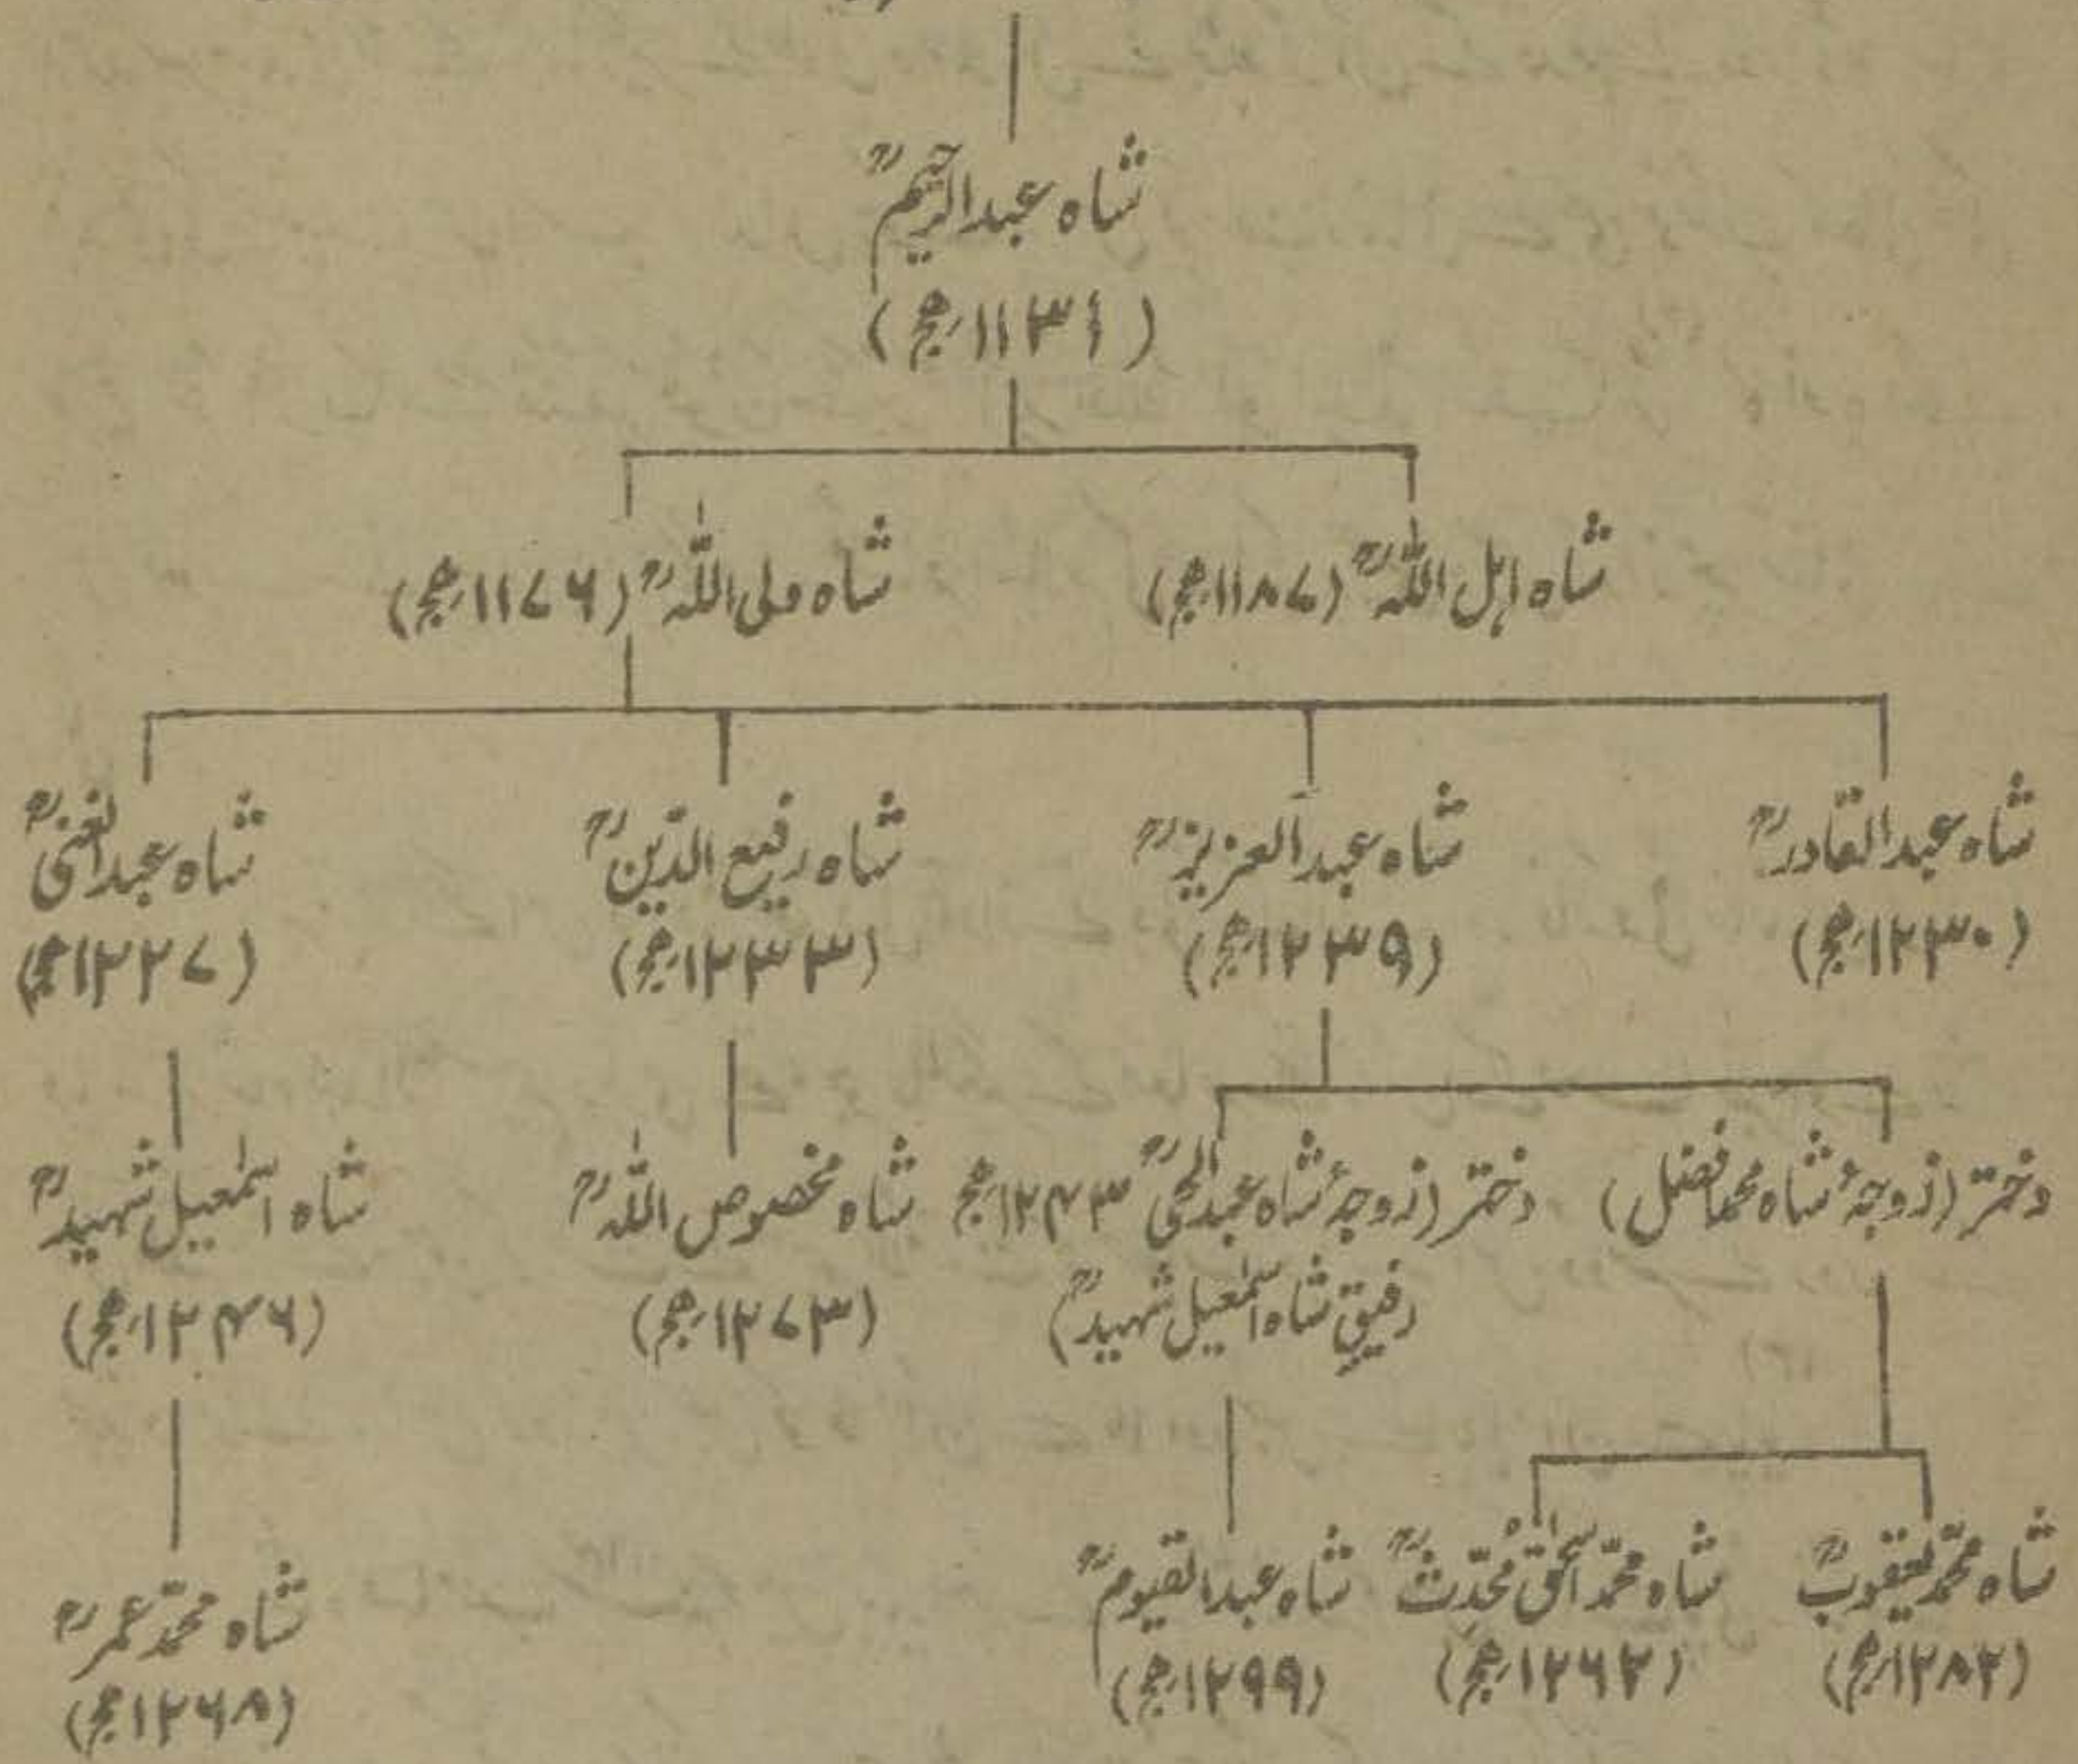 شاہ عبدالرحیمؒ
(۱۱۳۱ھج)
شاہ اہل اللہؒ (۱۱۸۷ھج)
شاہ ولی اللہؒ (۱۱۷۶ھج)
شاہ عبدالقادرؒ
(۱۲۳۰ھج)
شاہ عبدالعزیزؒ
(۱۲۳۹ھج)
شاہ رفیع الدّینؒ
(۱۲۳۳ھج)
شاہ عبدالغنیؒ
(۱۲۲۷ھج)
دختر (زوجۂ شاہ محمد افضل)
دختر (زوجۂ شاہ عبدالحیؒ ۱۲۴۳ھج
رفیقِ شاہ اسمٰعیل شہیدؒ)
شاہ مخصوص اللہؒ
(۱۲۷۳ھج)
شاہ اسمٰعیل شہیدؒ
(۱۲۴۶ھج)
شاہ محمّد یعقوبؒ
(۱۲۸۲ھج)
شاہ محمّد اسحٰق مُحدِّثؒ
(۱۲۶۲ھج)
شاہ عبدالقیومؒ
(۱۲۹۹ھج)
شاہ محمّد عمرؒ
(۱۲۶۸ھج)